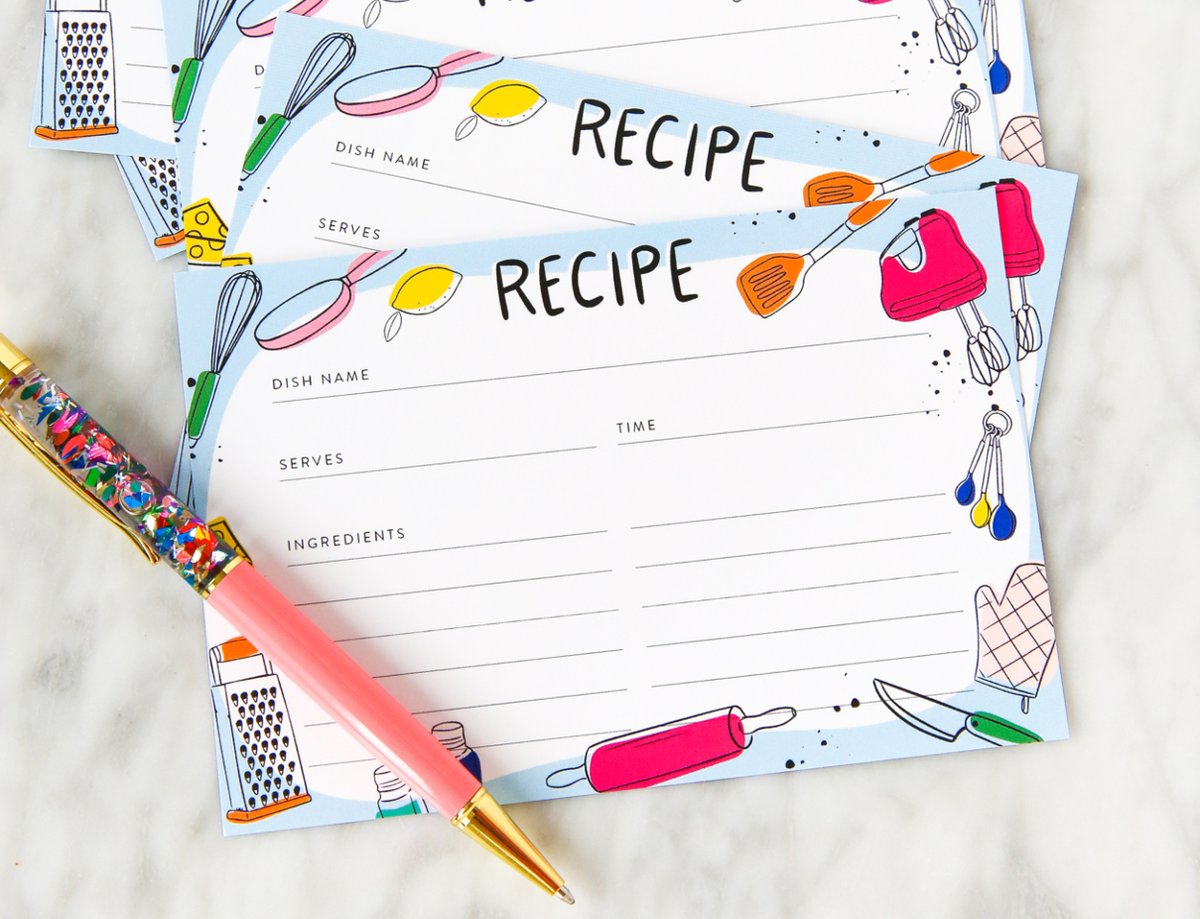 RECIPE
DISH NAME
SERVES
RECIPE
DISH NAME
SERVES
TIME
INGREDIENTS